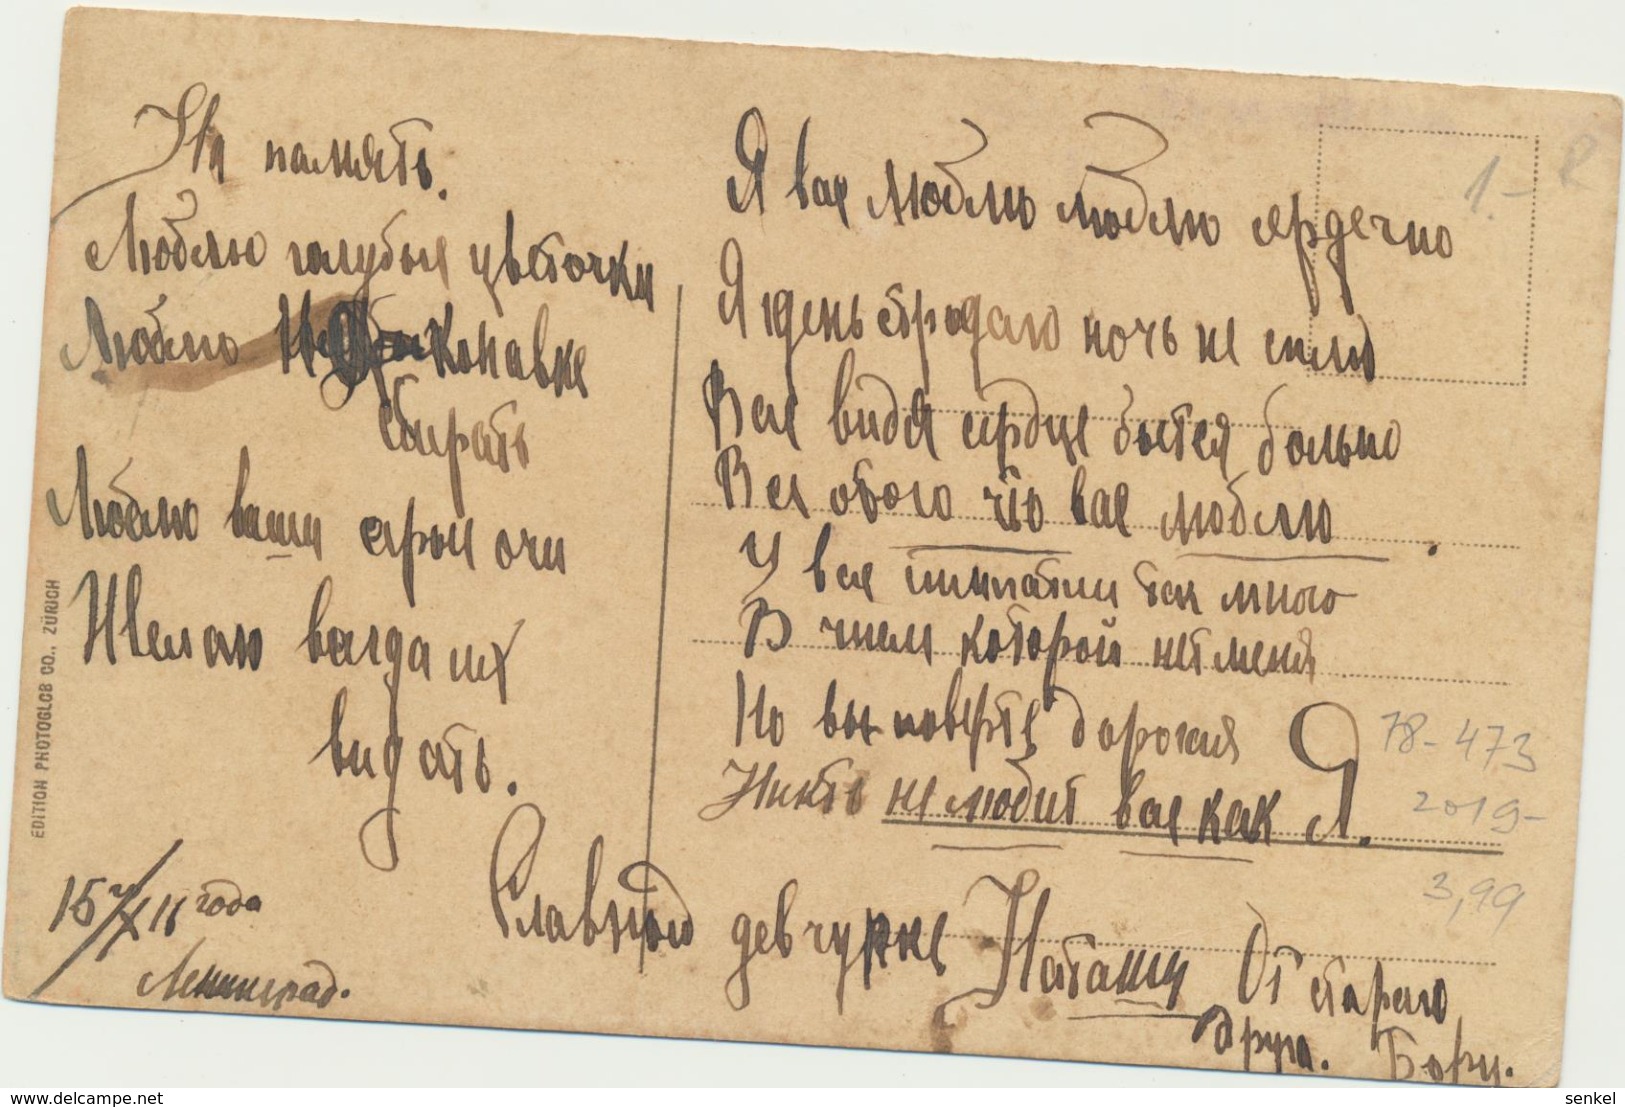 На память.
Люблю голубые цветочки
Люблю конавке
спрать
Люблю ваши серые очи
Желаю всегда их
видать.
15
года
Ленинград.
EDITION PHOTOGLOB CO., ZÜRICH
Я вас люблю люблю сердечно
Я день страдаю ночь не сплю
Вас видя сердце бьется больно
Все отого что вас люблю.
У вас симпатии так много
В числе которой нет меня
Но вы поверте дорогая
Никто не любит вас как я.
Славной девчурке Наташи От старого
друга. Бори.
1.-
78-473
2019-
3,99
delcampe.net
senkel